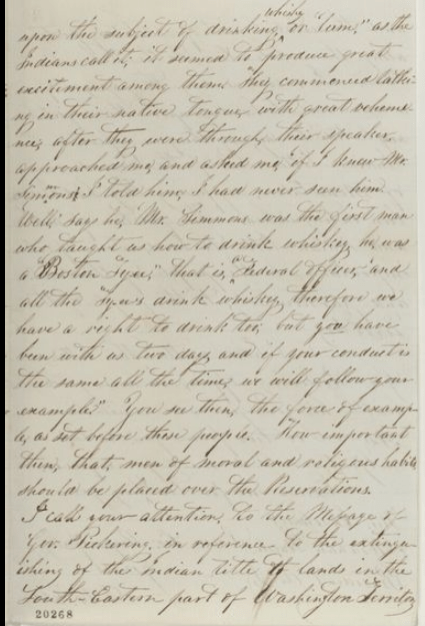 whisky
upon the subject of drinking, or "Lum," as the
Indians call it; it seemed to produce great
excitement among them. They commenced talki-
ng in their native tongue, with great veheme-
nce, after they were through, their speaker,
approached me, and asked me, "if I knew Mr.
Simmons; I told him, I had never seen him
Well," says he, "Mr. Simmons was the first man
who taught us how to drink whiskey, he was
a "Boston Tyee," that is, "a Federal Officer," and
all the "Tyee's drink whiskey, therefore we
have a right to drink too, but you have
been with us two days, and if your conduct is
the same all the time, we will follow your
example." You see then, the force of examp-
le, as set before these people. How important
then, that, men of moral and religious habits
should be placed over the Reservations.
I call your attention, to the Message of
Gov. Pickering, in reference to the extingu-
ishing of the indian title to lands in the
South-Eastern part of Washington Territory
20268